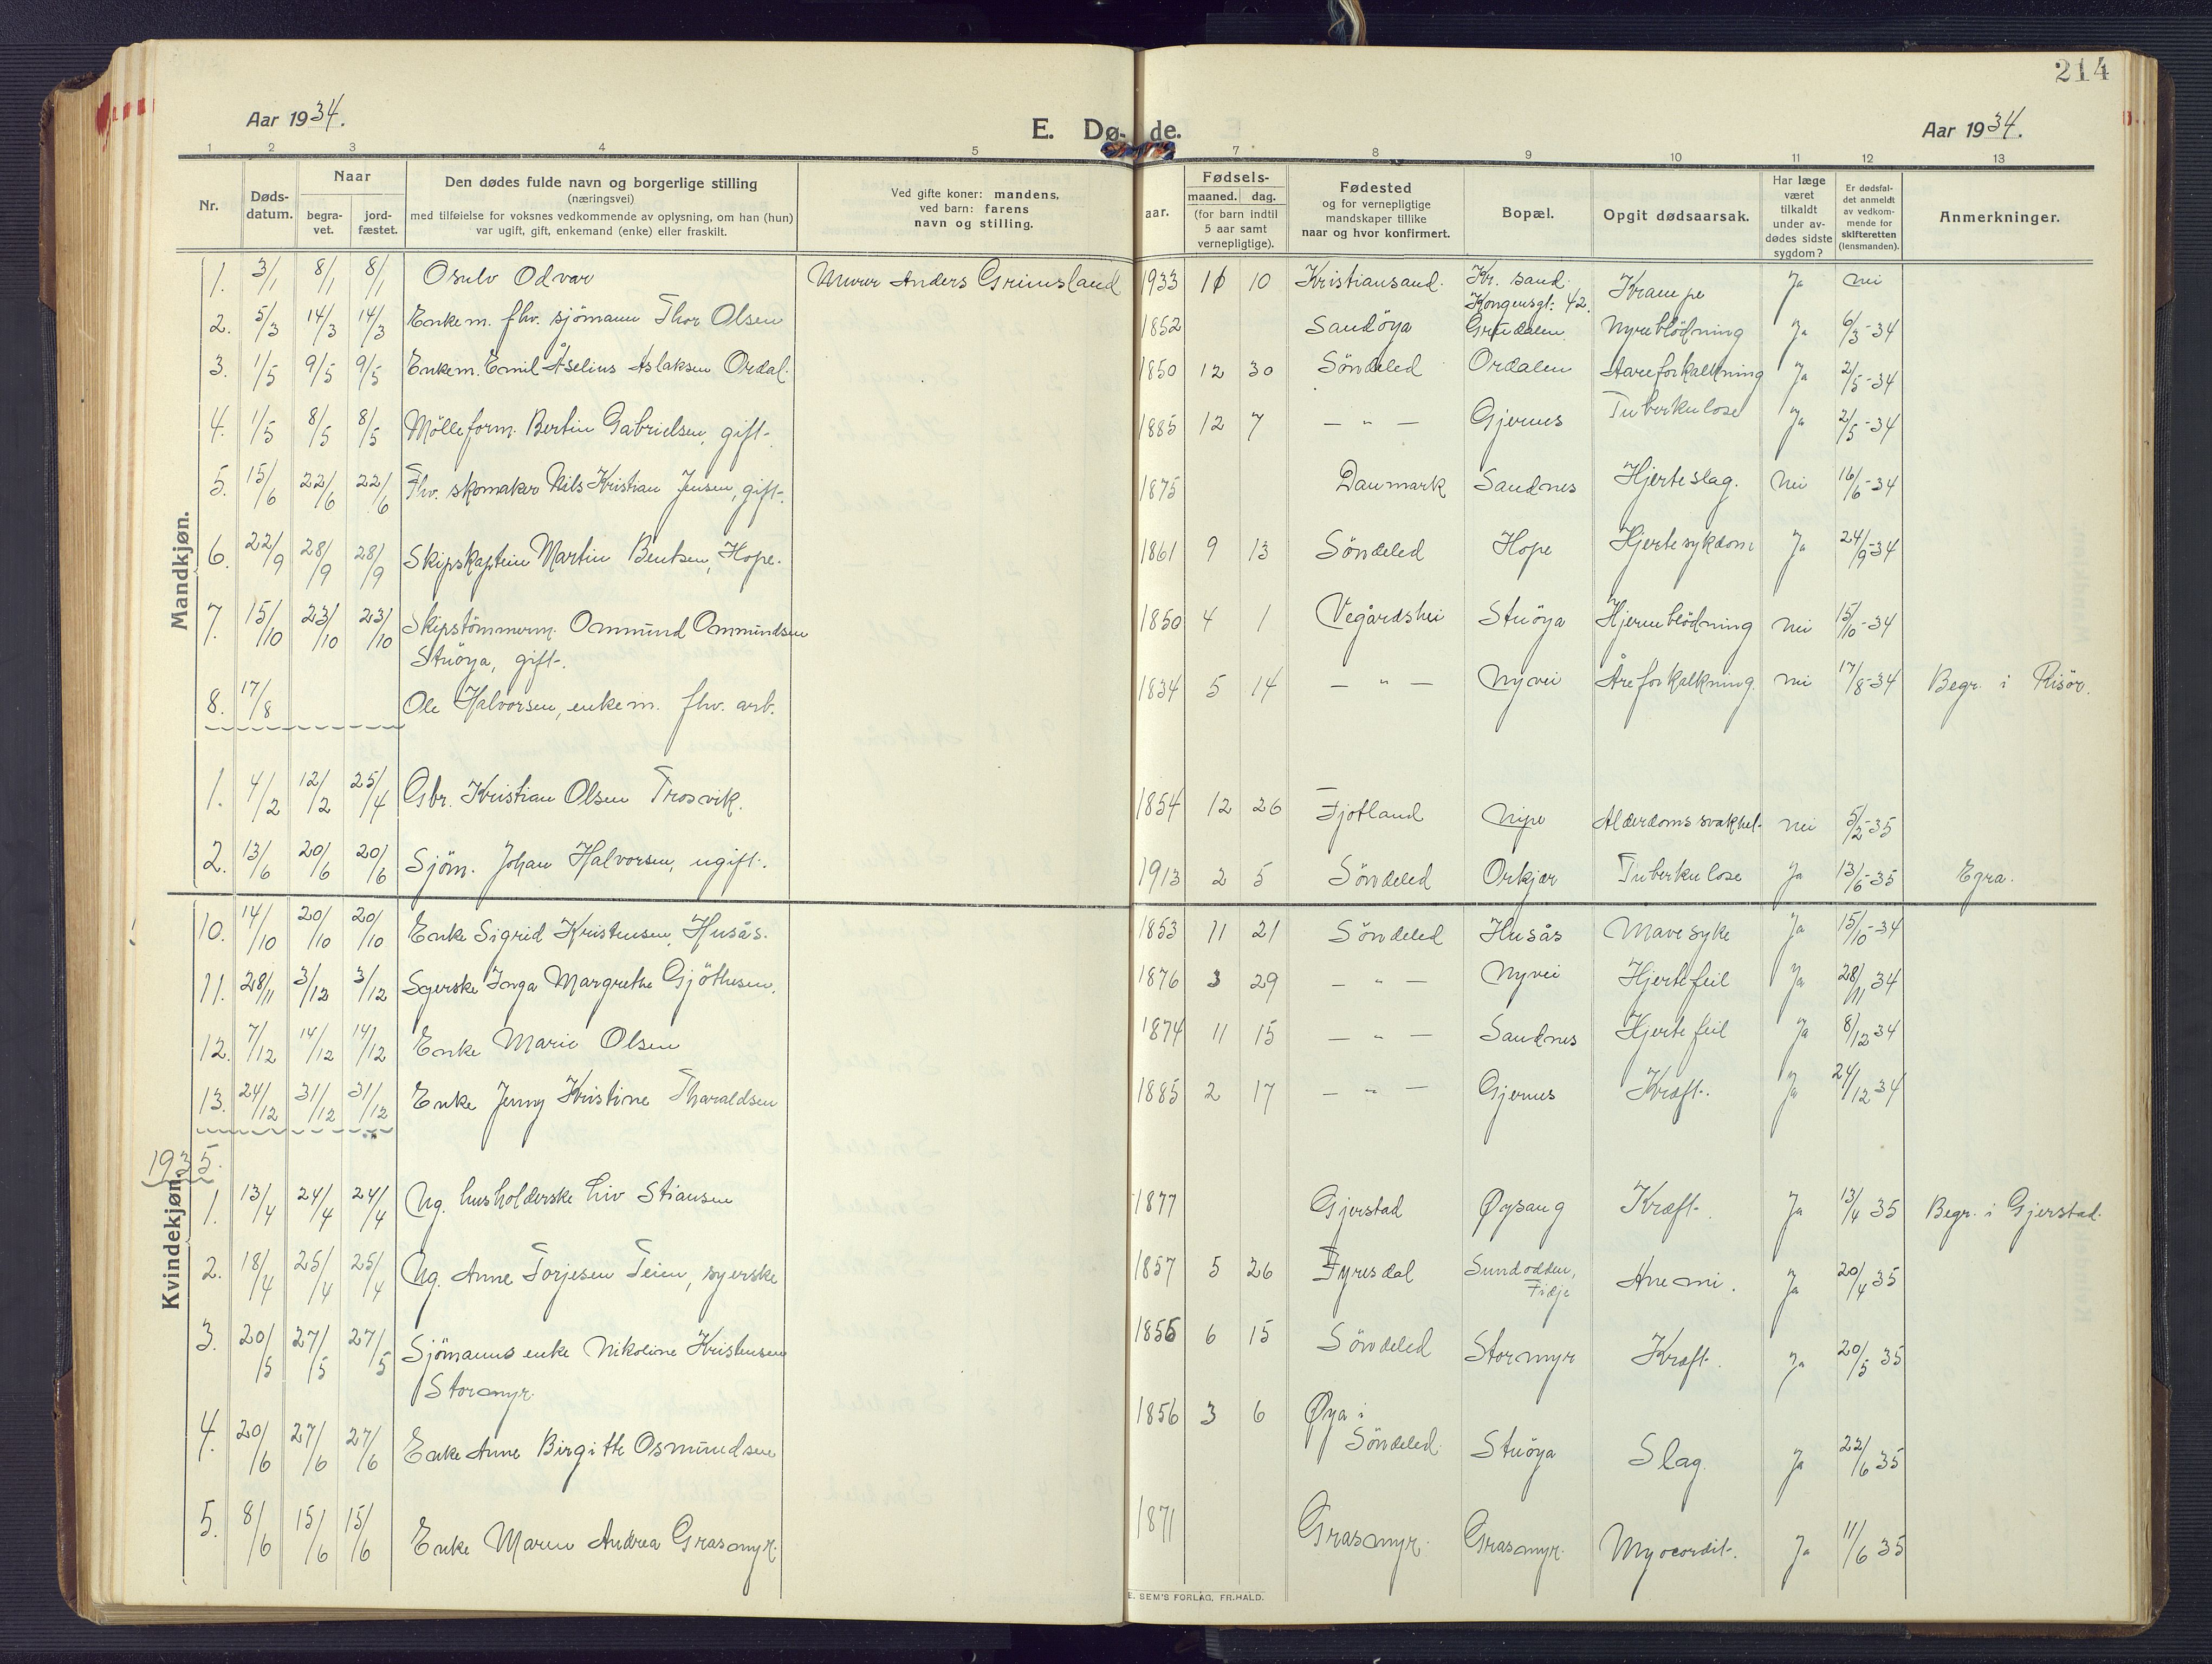 214
Aar 1934.
E. Dø- de.
Aar 1934.
1 2 3 4 5 7 8 9 10 11 12 13
Nr.
Døds-datum.
Naar
begra-vet.
jord-fæstet.
Den dødes fulde navn og borgerlige stilling
(næringsvei)
med tilføielse for voksnes vedkommende av oplysning, om han (hun)
var ugift, gift, enkemand (enke) eller fraskilt.
Ved gifte koner: mandens,
ved barn: farens
navn og stilling.
aar.
Fødsels-
maaned. dag.
(for barn indtil
5 aar samt
vernepligtige).
Fødested
og for vernepligtige
mandskaper tillike
naar og hvor konfirmert.
Bopæl.
Opgit dødsaarsak.
Har læge
været
tilkaldt
under av-
dødes sidste
sygdom?
Er dødsfal-
det anmeldt
av vedkom-
mende for
skifteretten
(lensmanden).
Anmerkninger.
Mandkjøn.
1. 3/1 8/1 8/1 Osulv Odvar Murer Anders Grimsland 1933 10 Kristiansand. Kr. sand. Kongensgt. 42. Krampe Ja nei
2. 5/3 14/3 14/3 Enkem. fhv. sjömann Thor Olsen 1852 Sandöya Grudalen Nyreblödning Ja 6/3-34
3. 1/5 9/5 9/5 Enkem. Emil Åselius Aslaksen Ordal. 1850 12 30 Söndeled Ordalen Aareforkalkning Ja 2/5-34
4. 1/5 8/5 8/5 Mölleform. Bertin Gabrielsen, gift. 1885 12 7 — " — Gjernes Tuberkulose Ja 2/5-34
5. 15/6 22/6 22/6 Fhv. skomaker Nils Kristian Jensen, gift. 1875 Danmark Sandnes Hjerteslag. Nei 16/6-34
6. 22/9 28/9 28/9 Skipskaptein Martin Bentsen, Hope. 1861 9 13 Söndeled Hope Hjertesykdom Ja 24/9-34
7. 15/10 23/10 23/10 Skipstömmerm. Ommund Ommundsen 1850 4 1 Vegårdshei Stuöya Hjerneblödning nei 15/10-34
Stuöya, gift.
8. 17/8 Ole Halvorsen, enkem. fhv. arb. 1834 5 14 — " — Nyvei Åreforkalkning. nei 17/8-34 Begr. i Risör.
1. 4/2 12/2 25/4 Gbr. Kristian Olsen Trosvik. 1854 12 26 Fjotland Nipe Alderdomssvakhet. nei 5/2-35
2. 13/6 20/6 20/6 Sjöm. Johan Halvorsen, ugift. 1913 2 5 Söndeled Orkjær Tuberkulose Ja 13/6-35 Egra.
Kvindekjøn.
10. 14/10 20/10 20/10 Enke Sigrid Kristensen, Husås. 1853 11 21 Söndeled Husås Mavesyke Ja 15/10-34
11. 28/11 3/12 3/12 Syerske Inga Margrethe Gjöthesen. 1876 3 29 — " — Nyvei Hjertefeil Ja 28/11 34
12. 7/12 14/12 14/12 Enke Marie Olsen 1874 11 15 — " — Sandnes Hjertefeil Ja 8/12 34
13. 24/12 31/12 31/12 Enke Jenny Kristine Tharaldsen 1885 2 17 — " — Gjernes Kræft. Ja 24/12-34
1935.
1. 13/4 24/4 24/4 Ug. husholderske Liv Stiansen 1877 Gjerstad Øysang Kræft. Ja 13/4 35 Begr. i Gjerstad.
2. 18/4 25/4 25/4 Ug. Anne Torjesen Teien, syerske 1857 5 26 Fyresdal Sundodden, Fidje Anemi. Ja 20/4 35
3. 20/5 27/5 27/5 Sjömanns enke Nikoline Kristensen 6 15 Söndeled Stormyr Kræft. Ja 20/5 35
Stormyr.
4. 20/6 27/6 27/6 Enke Anne Birgitte Osmundsen 1856 3 6 Øya i Söndeled. Stuöya Slag. Ja 22/6 35
5. 8/6 15/6 15/6 Enke Maren Andrea Grasmyr. 1871 Grasmyr. Grasmyr. Myocordit. Ja 11/6 35
E. SEM'S FORLAG, FR.HALD.